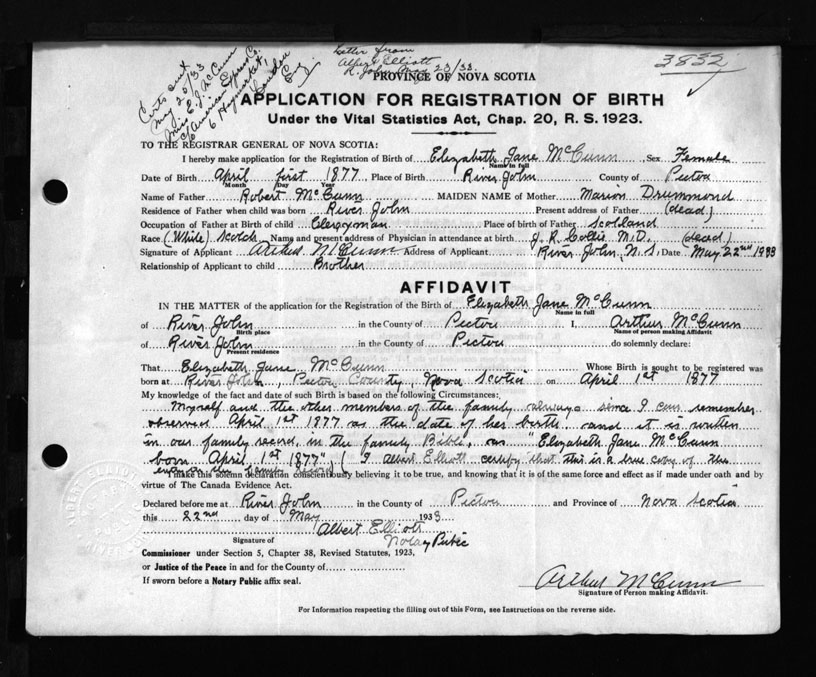 Certs sent
May 25/33
Miss E. J. McCunn
c/o American Express Co.
6 Haymarket,
London
Eng.
letter from
Albert Elliott
R. John May 23/33.
3832
PROVINCE OF NOVA SCOTIA
APPLICATION FOR REGISTRATION OF BIRTH
Under the Vital Statistics Act, Chap. 20, R. S. 1923.
TO THE REGISTRAR GENERAL OF NOVA SCOTIA:
I hereby make application for the Registration of Birth of Elizabeth Jane McCunn, Sex Female
Name in full
Date of Birth April first 1877 Place of Birth River John County of Pictou
Month Day Year
Name of Father Robert McCunn MAIDEN NAME of Mother Marion Drummond
Residence of Father when child was born River John Present address of Father (dead)
Occupation of Father at Birth of child Clergyman Place of birth of Father Scotland
Race (White) Scotch Name and present address of Physician in attendance at birth J. R. Collie M.D. (dead)
Signature of Applicant Arthur McCunn Address of Applicant River John, N.S. Date May 22nd 1933
Relationship of Applicant to child Brother
AFFIDAVIT
IN THE MATTER of the application for the Registration of the Birth of Elizabeth Jane McCunn
Name in full
of River John in the County of Pictou I, Arthur McCunn
Birth place Name of person making Affidavit
of River John in the County of Pictou do solemnly declare:
Present residence
That Elizabeth Jane McCunn Whose Birth is sought to be registered was
born at River John, Pictou County, Nova Scotia on April 1st 1877
My knowledge of the fact and date of such Birth is based on the following Circumstances:
Myself and the other members of the family always since I can remember
observed April 1st 1877 as the date of her birth and it is written
in our family record, in the family Bible, as "Elizabeth Jane McCunn
born April 1st 1877" (I Albert Elliott certify that this is a true copy of the
I make this solemn declaration conscientiously believing it to be true, and knowing that it is of the same force and effect as if made under oath and by
virtue of The Canada Evidence Act.
Declared before me at River John in the County of Pictou and Province of Nova Scotia
this 22nd day of May 1933
Albert Elliott
Signature of Notary Public
Commissioner under Section 5, Chapter 38, Revised Statutes, 1923,
or Justice of the Peace in and for the County of
If sworn before a Notary Public affix seal.
Arthur McCunn
Signature of Person making Affidavit.
For Information respecting the filling out of this Form, see Instructions on the reverse side.